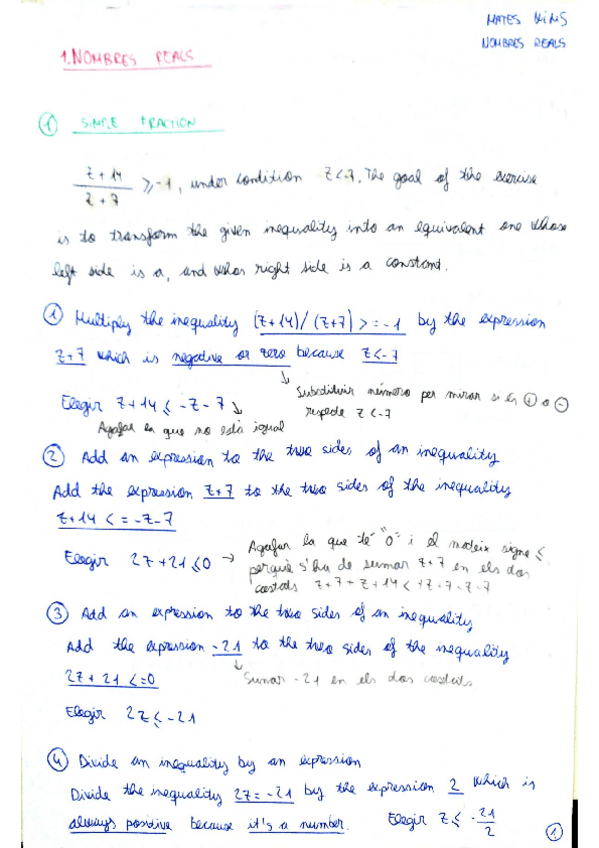 MATES WIMS
NOMBRES REALS
1. NOMBRES REALS
① SIMPLE FRACTION
z + 14 / z + 7 ≥ -1, under condition z < -7. The goal of the exercise
is to transform the given inequality into an equivalent one whose
left side is a, and whos right side is a constant.
① Multiply the inequality (z+14)/(z+7) >= -1 by the expression
z+7 which is negative or zero because z<-7
Substituir número per mirar si és ⊕ o ⊖
respecte z<-7
Elegir z+14 ≤ -z-7
Agafar la que no està igual
② Add an expression to the two sides of an inequality
Add the expression z+7 to the two sides of the inequality
z+14 <= -z-7
Elegir 2z+21 ≤ 0 → Agafar la que té "0" i el mateix signe ≤
perquè s'ha de sumar z+7 en els dos
costats
③ Add an expression to the two sides of an inequality
Add the expression -21 to the two sides of the inequality
2z+21 <=0
Sumar -21 en els dos costats
Elegir 2z ≤ -21
④ Divide an inequality by an expression
Divide the inequality 2z = -21 by the expression 2 which is
always positive because it's a number. Elegir z ≤ -21/2
①